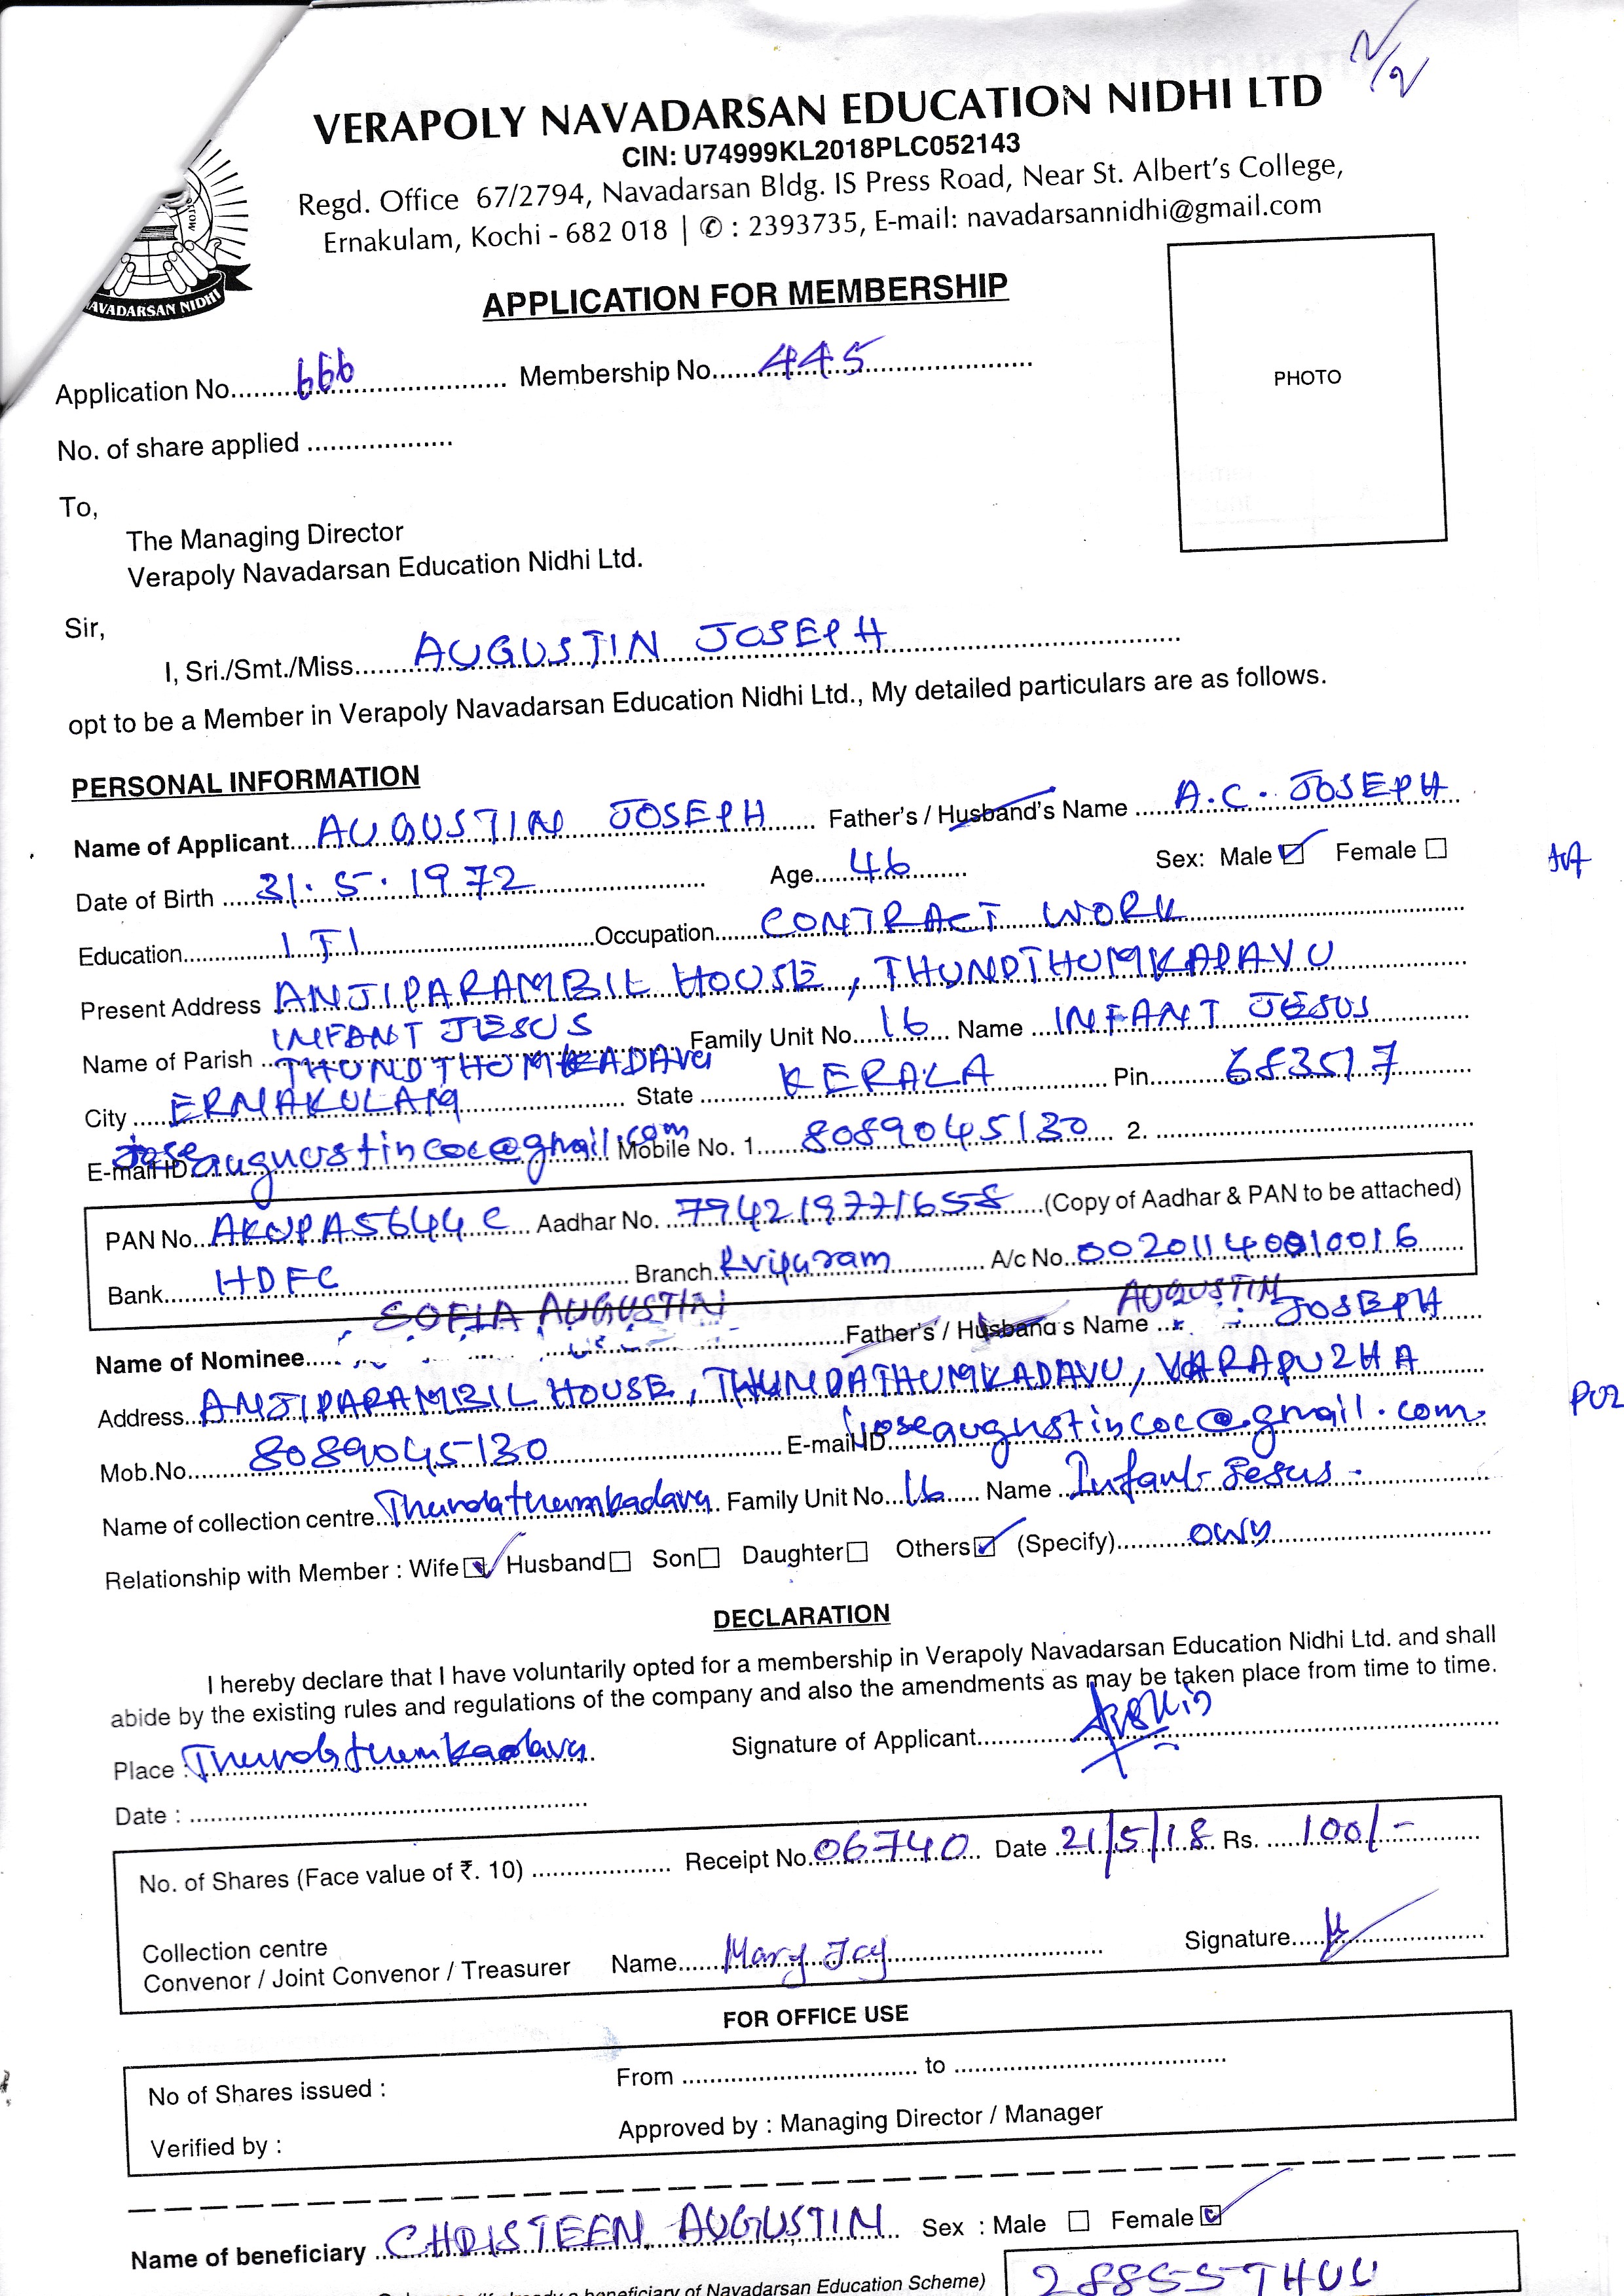 N/2
VERAPOLY NAVADARSAN EDUCATION NIDHI LTD
CIN: U74999KL2018PLC052143
Regd. Office 67/2794, Navadarsan Bldg. IS Press Road, Near St. Albert's College,
Ernakulam, Kochi - 682 018 | ✆ : 2393735, E-mail: navadarsannidhi@gmail.com
AVADARSAN NIDHI
APPLICATION FOR MEMBERSHIP
PHOTO
Application No. 666 Membership No. 445
No. of share applied
To,
The Managing Director
Verapoly Navadarsan Education Nidhi Ltd.
Sir,
I, Sri./Smt./Miss AUGUSTIN JOSEPH
opt to be a Member in Verapoly Navadarsan Education Nidhi Ltd., My detailed particulars are as follows.
PERSONAL INFORMATION
Name of Applicant AUGUSTIN JOSEPH Father's / Husband's Name A.C. JOSEPH
Date of Birth 31.5.1972 Age 46 Sex: Male ☑ Female ☐
Education ITI Occupation CONTRACT WORK
Present Address ANJIPARAMBIL HOUSE, THUNDTHUMKADAVU
Name of Parish INFANT JESUS THUNDTHUMKADAVU Family Unit No. 16 Name INFANT JESUS
City ERNAKULAM State KERALA Pin 683517
E-mail ID joseaugustincoc@gmail.com Mobile No. 1. 8089045130 2.
PAN No. AKUPA5644C Aadhar No. 794219771658 (Copy of Aadhar & PAN to be attached)
Bank HDFC Branch Rvipuram A/c No. 00201140010016
Name of Nominee SOFIA AUGUSTIN Father's / Husband's Name AUGUSTIN JOSEPH
Address ANJIPARAMBIL HOUSE, THUNDATHUMKADAVU, VARAPUZHA
Mob.No. 8089045130 E-mail ID joseaugustincoc@gmail.com
Name of collection centre Thundathumkadavu Family Unit No. 16 Name Infant Jesus
Relationship with Member : Wife ☑ Husband ☐ Son ☐ Daughter ☐ Others ☑ (Specify)
DECLARATION
I hereby declare that I have voluntarily opted for a membership in Verapoly Navadarsan Education Nidhi Ltd. and shall
abide by the existing rules and regulations of the company and also the amendments as may be taken place from time to time.
Place : Thundathumkadavu Signature of Applicant
Date :
No. of Shares (Face value of ₹. 10) Receipt No. 06740 Date 21/5/18 Rs. 100/-
Collection centre
Convenor / Joint Convenor / Treasurer Name Mary Joy Signature
FOR OFFICE USE
No of Shares issued : From to
Verified by : Approved by : Managing Director / Manager
Name of beneficiary CHRISTEEN AUGUSTIN Sex : Male ☐ Female ☑
beneficiary of Navadarsan Education Scheme) 28855THUU